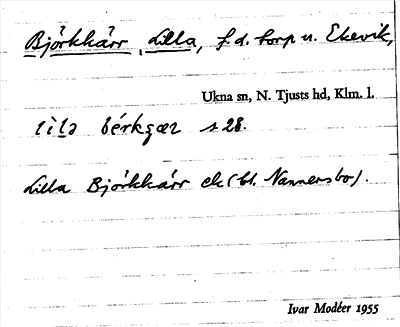 Björkkärr, Lilla, f.d. torp u. Ekevik,
Ukna sn, N. Tjusts hd, Klm. l.
lìlə bérkçær s 28.
Lilla Björkkärr ek (bl. Nannersbo).
Ivar Modéer 1955